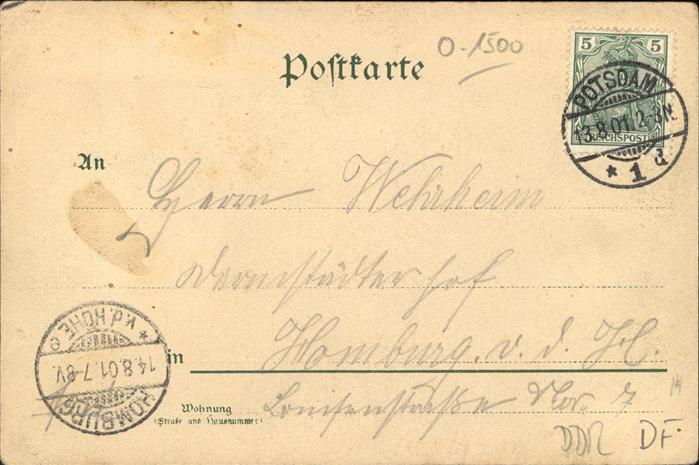 O-1500
Postkarte
5 5
REICHSPOST
POTSDAM
13.8.01.2-3N.
* 1 d
An
Herrn Wehrheim
Darmstädter Hof
in Homburg. v. d. H.
Wohnung
(Straße und Hausnummer)
Louisenstraße Nor. 7
HOMBURG
14.8.01.7-8V.
* v.d.HÖHE
DDR DF.